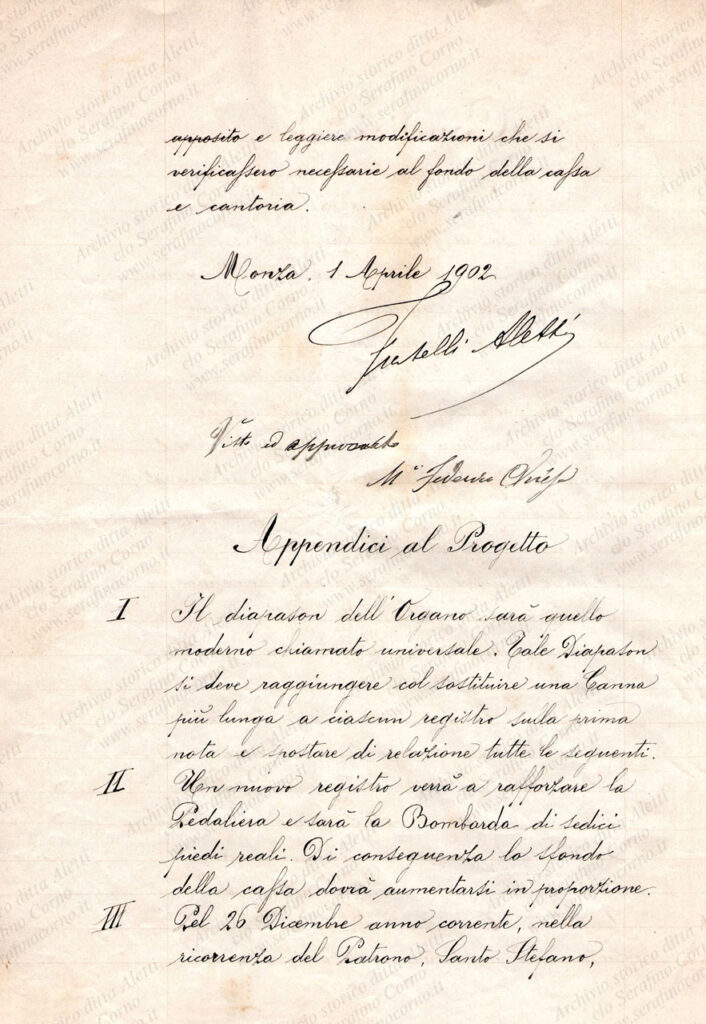 apposito e leggiere modificazioni che si
verificassero necessarie al fondo della cassa
e cantoria.
Monza. 1 Aprile 1902
Fratelli Aletti
Visto ed approvato
M° Federico
Appendici al Progetto
I Il diapason dell'Organo sarà quello
moderno chiamato universale. Tale Diapason
si deve raggiungere col sostituire una Canna
più lunga a ciascun registro sulla prima
nota e spostare di relazione tutte le seguenti.
II Un nuovo registro verrà a rafforzare la
Pedaliera e sarà la Bombarda di sedici
piedi reali. Di conseguenza lo sfondo
della cassa dovrà aumentarsi in proporzione.
III Pel 26 Dicembre anno corrente, nella
ricorrenza del Patrono, Santo Stefano,
Archivio storico ditta Aletti
c/o Serafino Corno
www.serafinocorno.it